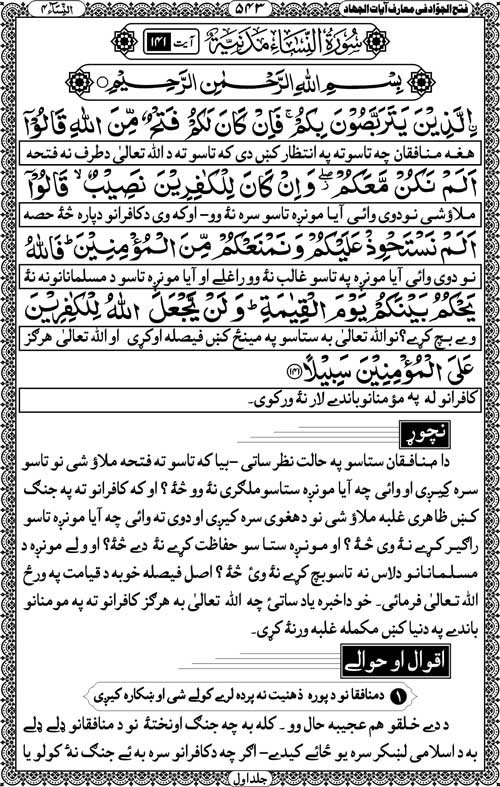 فتح الجوّاد فی معارف آیات الجهاد ۵۴۳ النساء ۴
سُورَةُ النِّسَاءِ مَدَنِيَّةٌ آیت ۱۴۱
بِسْمِ اللهِ الرَّحْمٰنِ الرَّحِيْمِ
ۨالَّذِيْنَ يَتَرَبَّصُوْنَ بِكُمْ ۚ فَاِنْ كَانَ لَكُمْ فَتْحٌ مِّنَ اللهِ قَالُوْۤا
هغه منافقان چه تاسو ته په انتظار کښ دی که تاسو ته د الله تعالیٰ د طرف نه فتحه
اَلَمْ نَكُنْ مَّعَكُمْ ۖ وَاِنْ كَانَ لِلْكٰفِرِيْنَ نَصِيْبٌ ۙ قَالُوْۤا
ملاؤ شی نو دوی وائی آیا مونږه تاسو سره نۀ وو- او که وی د کافرانو دپاره څۀ حصه
اَلَمْ نَسْتَحْوِذْ عَلَيْكُمْ وَنَمْنَعْكُمْ مِّنَ الْمُؤْمِنِيْنَ ؕ فَاللهُ
نو دوی وائی آیا مونږه په تاسو غالب نۀ وو راغلے او آیا مونږه تاسو د مسلمانانو نه نۀ
يَحْكُمُ بَيْنَكُمْ يَوْمَ الْقِيٰمَةِ ؕ وَلَنْ يَّجْعَلَ اللهُ لِلْكٰفِرِيْنَ
وے بچ کړے؟ نو الله تعالیٰ به ستاسو په مینځ کښ فیصله اوکړی او الله تعالیٰ هرګز
عَلَى الْمُؤْمِنِيْنَ سَبِيْلًا ﴿۱۴۱﴾
کافرانو له په مؤمنانو باندے لار نۀ ورکوی.
نچوړ
دا منافقان ستاسو په حالت نظر ساتی - بیا که تاسو ته فتحه ملاؤ شی نو تاسو
سره کیږی او وائی چه آیا مونږه ستاسو ملګری نۀ وو څۀ؟ او که کافرانو ته په جنګ
کښ ظاهری غلبه ملاؤ شی نو د هغوی سره کیږی او دوی ته وائی چه آیا مونږه تاسو
راګیر کړے نۀ وی څۀ؟ او مونږه ستاسو حفاظت کړے نۀ دے څۀ؟ او ولے مونږه د
مسلمانانو د لاس نه تاسو بچ کړے نۀ وئ څۀ؟ اصل فیصله خو به د قیامت په ورځ
الله تعالیٰ فرمائی. خو دا خبره یاد ساتئ چه الله تعالیٰ به هرګز کافرانو ته په مومنانو
باندے په دنیا کښ مکمله غلبه ورنۀ کړی.
اقوال او حوالے
۱ د منافقانو د پوره ذهنیت نه پرده لرے کولے شی او ښکاره کیږی
د دے خلقو هم عجیبه حال وو. کله به چه جنګ اونختۀ نو د منافقانو ډلے ډلے
به د اسلامی لښکر سره یو ځائے کیدے- اګر چه د کافرانو سره به ئے جنګ نۀ کولو یا
جلد اول